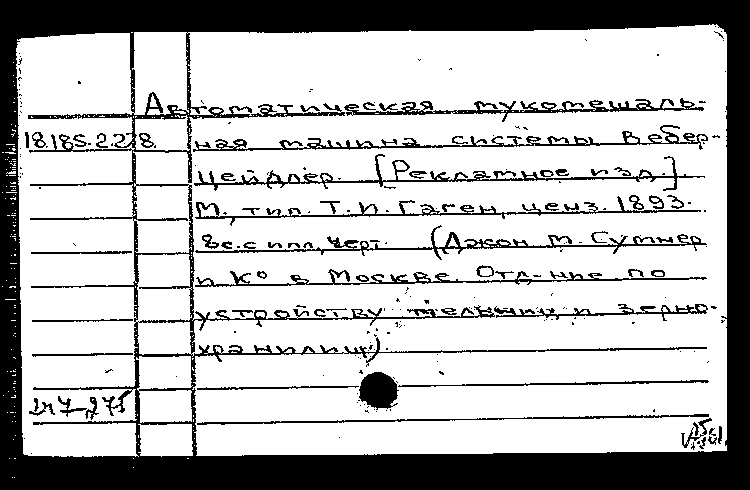 Автоматическая мукомешаль-
18.185.2.278. ная машина системы Вебер-
Цейдлер. [Рекламное изд.]
М., тип. Т. И. Гаген, ценз. 1893.
8с. с илл., черт. (Джон М. Сумнер
и К° в Москве. Отд-ние по
устройству мельниц и зерно-
хранилищ)